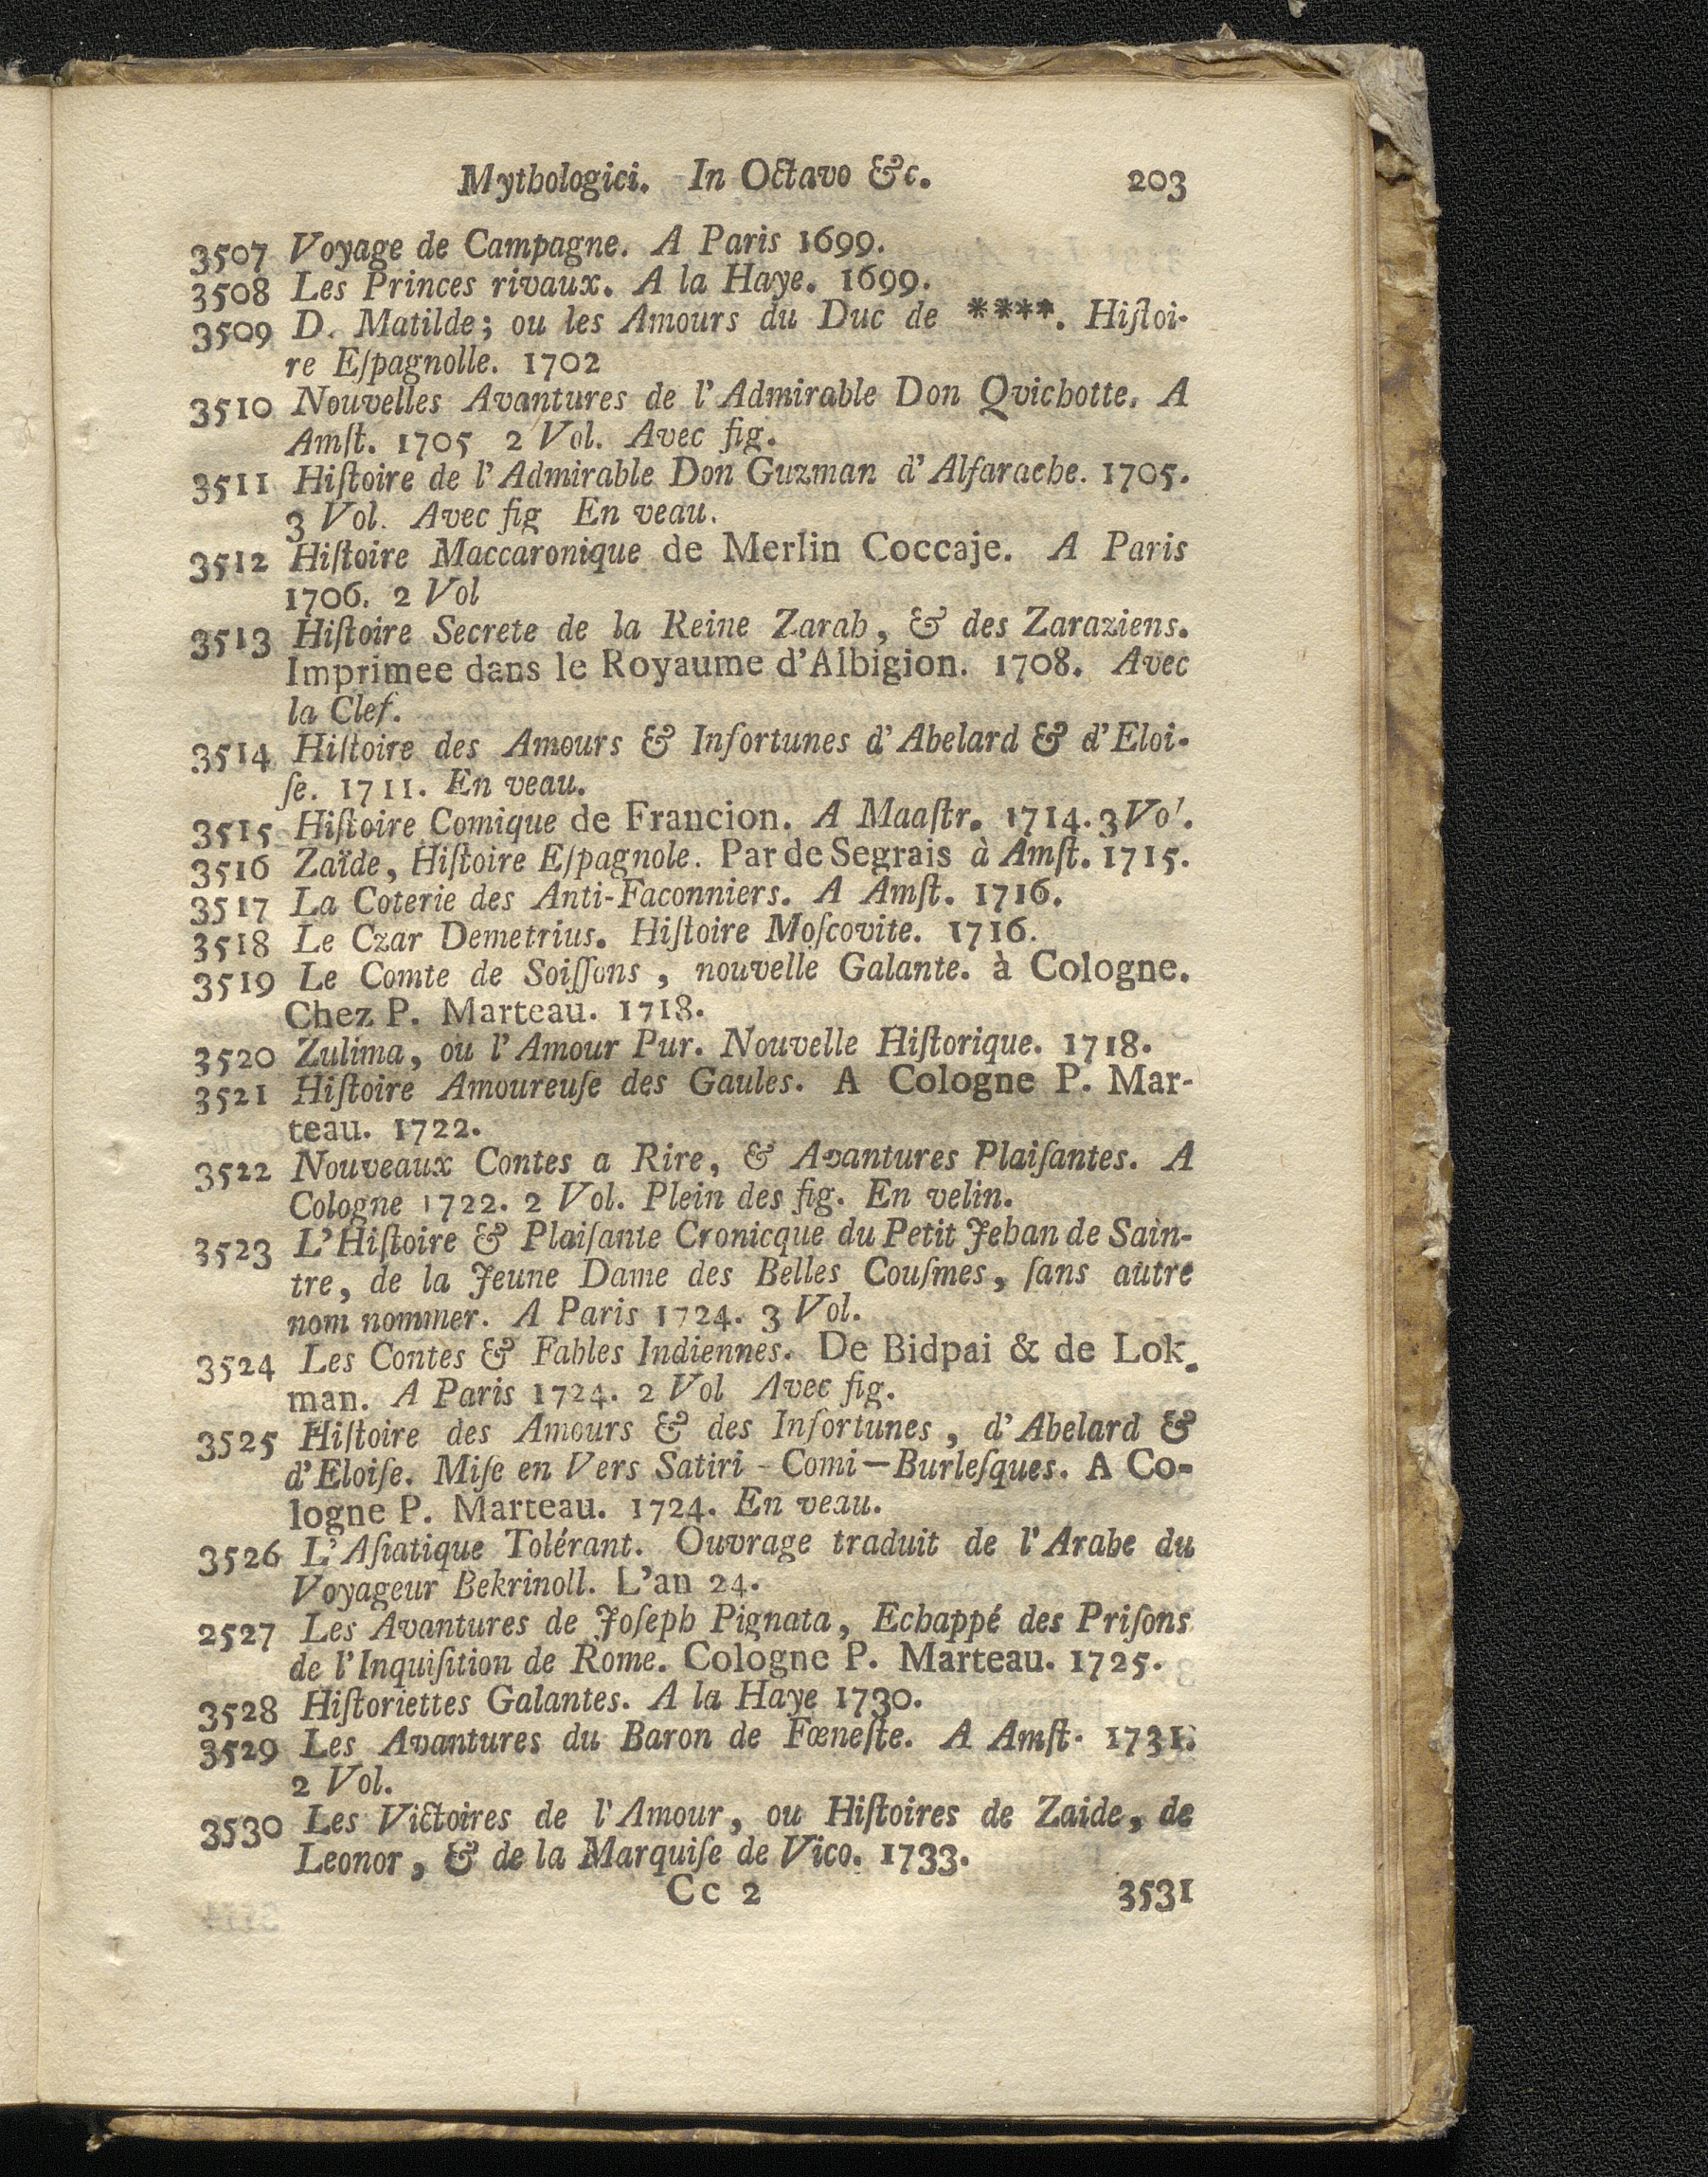 Mythologici. In Octavo &c. 203
3507 Voyage de Campagne. A Paris 1699.
3508 Les Princes rivaux. A la Haye. 1699.
3509 D. Matilde; ou les Amours du Duc de ****. Hiſtoi-
re Eſpagnolle. 1702
3510 Nouvelles Avantures de l'Admirable Don Qvichotte. A
Amſt. 1705 2 Vol. Avec fig.
3511 Hiſtoire de l'Admirable Don Guzman d'Alfarache. 1705.
3 Vol. Avec fig En veau.
3512 Hiſtoire Maccaronique de Merlin Coccaje. A Paris
1706. 2 Vol
3513 Hiſtoire Secrete de la Reine Zarah, & des Zaraziens.
Imprimee dans le Royaume d'Albigion. 1708. Avec
la Clef.
3514 Hiſtoire des Amours & Infortunes d'Abelard & d'Eloi-
ſe. 1711. En veau.
3515 Hiſtoire Comique de Francion. A Maaſtr. 1714. 3 Vol.
3516 Zaïde, Hiſtoire Eſpagnole. Par de Segrais à Amſt. 1715.
3517 La Coterie des Anti-Faconniers. A Amſt. 1716.
3518 Le Czar Demetrius. Hiſtoire Moſcovite. 1716.
3519 Le Comte de Soiſſons, nouvelle Galante. à Cologne.
Chez P. Marteau. 1718.
3520 Zulima, ou l'Amour Pur. Nouvelle Hiſtorique. 1718.
3521 Hiſtoire Amoureuſe des Gaules. A Cologne P. Mar-
teau. 1722.
3522 Nouveaux Contes a Rire, & Avantures Plaiſantes. A
Cologne 1722. 2 Vol. Plein des fig. En velin.
3523 L'Hiſtoire & Plaiſante Cronicque du Petit Jehan de Sain-
tre, de la Jeune Dame des Belles Couſmes, ſans autre
nom nommer. A Paris 1724. 3 Vol.
3524 Les Contes & Fables Indiennes. De Bidpai & de Lok.
man. A Paris 1724. 2 Vol Avec fig.
3525 Hiſtoire des Amours & des Infortunes, d'Abelard &
d'Eloiſe. Miſe en Vers Satiri - Comi—Burleſques. A Co-
logne P. Marteau. 1724. En veau.
3526 L'Aſiatique Tolérant. Ouvrage traduit de l'Arabe du
Voyageur Bekrinoll. L'an 24.
2527 Les Avantures de Joſeph Pignata, Echappé des Priſons
de l'Inquiſition de Rome. Cologne P. Marteau. 1725.
3528 Hiſtoriettes Galantes. A la Haye 1730.
3529 Les Avantures du Baron de Fœneſte. A Amſt. 1731.
2 Vol.
3530 Les Victoires de l'Amour, ou Hiſtoires de Zaide, de
Leonor, & de la Marquiſe de Vico. 1733.
Cc 2 3531